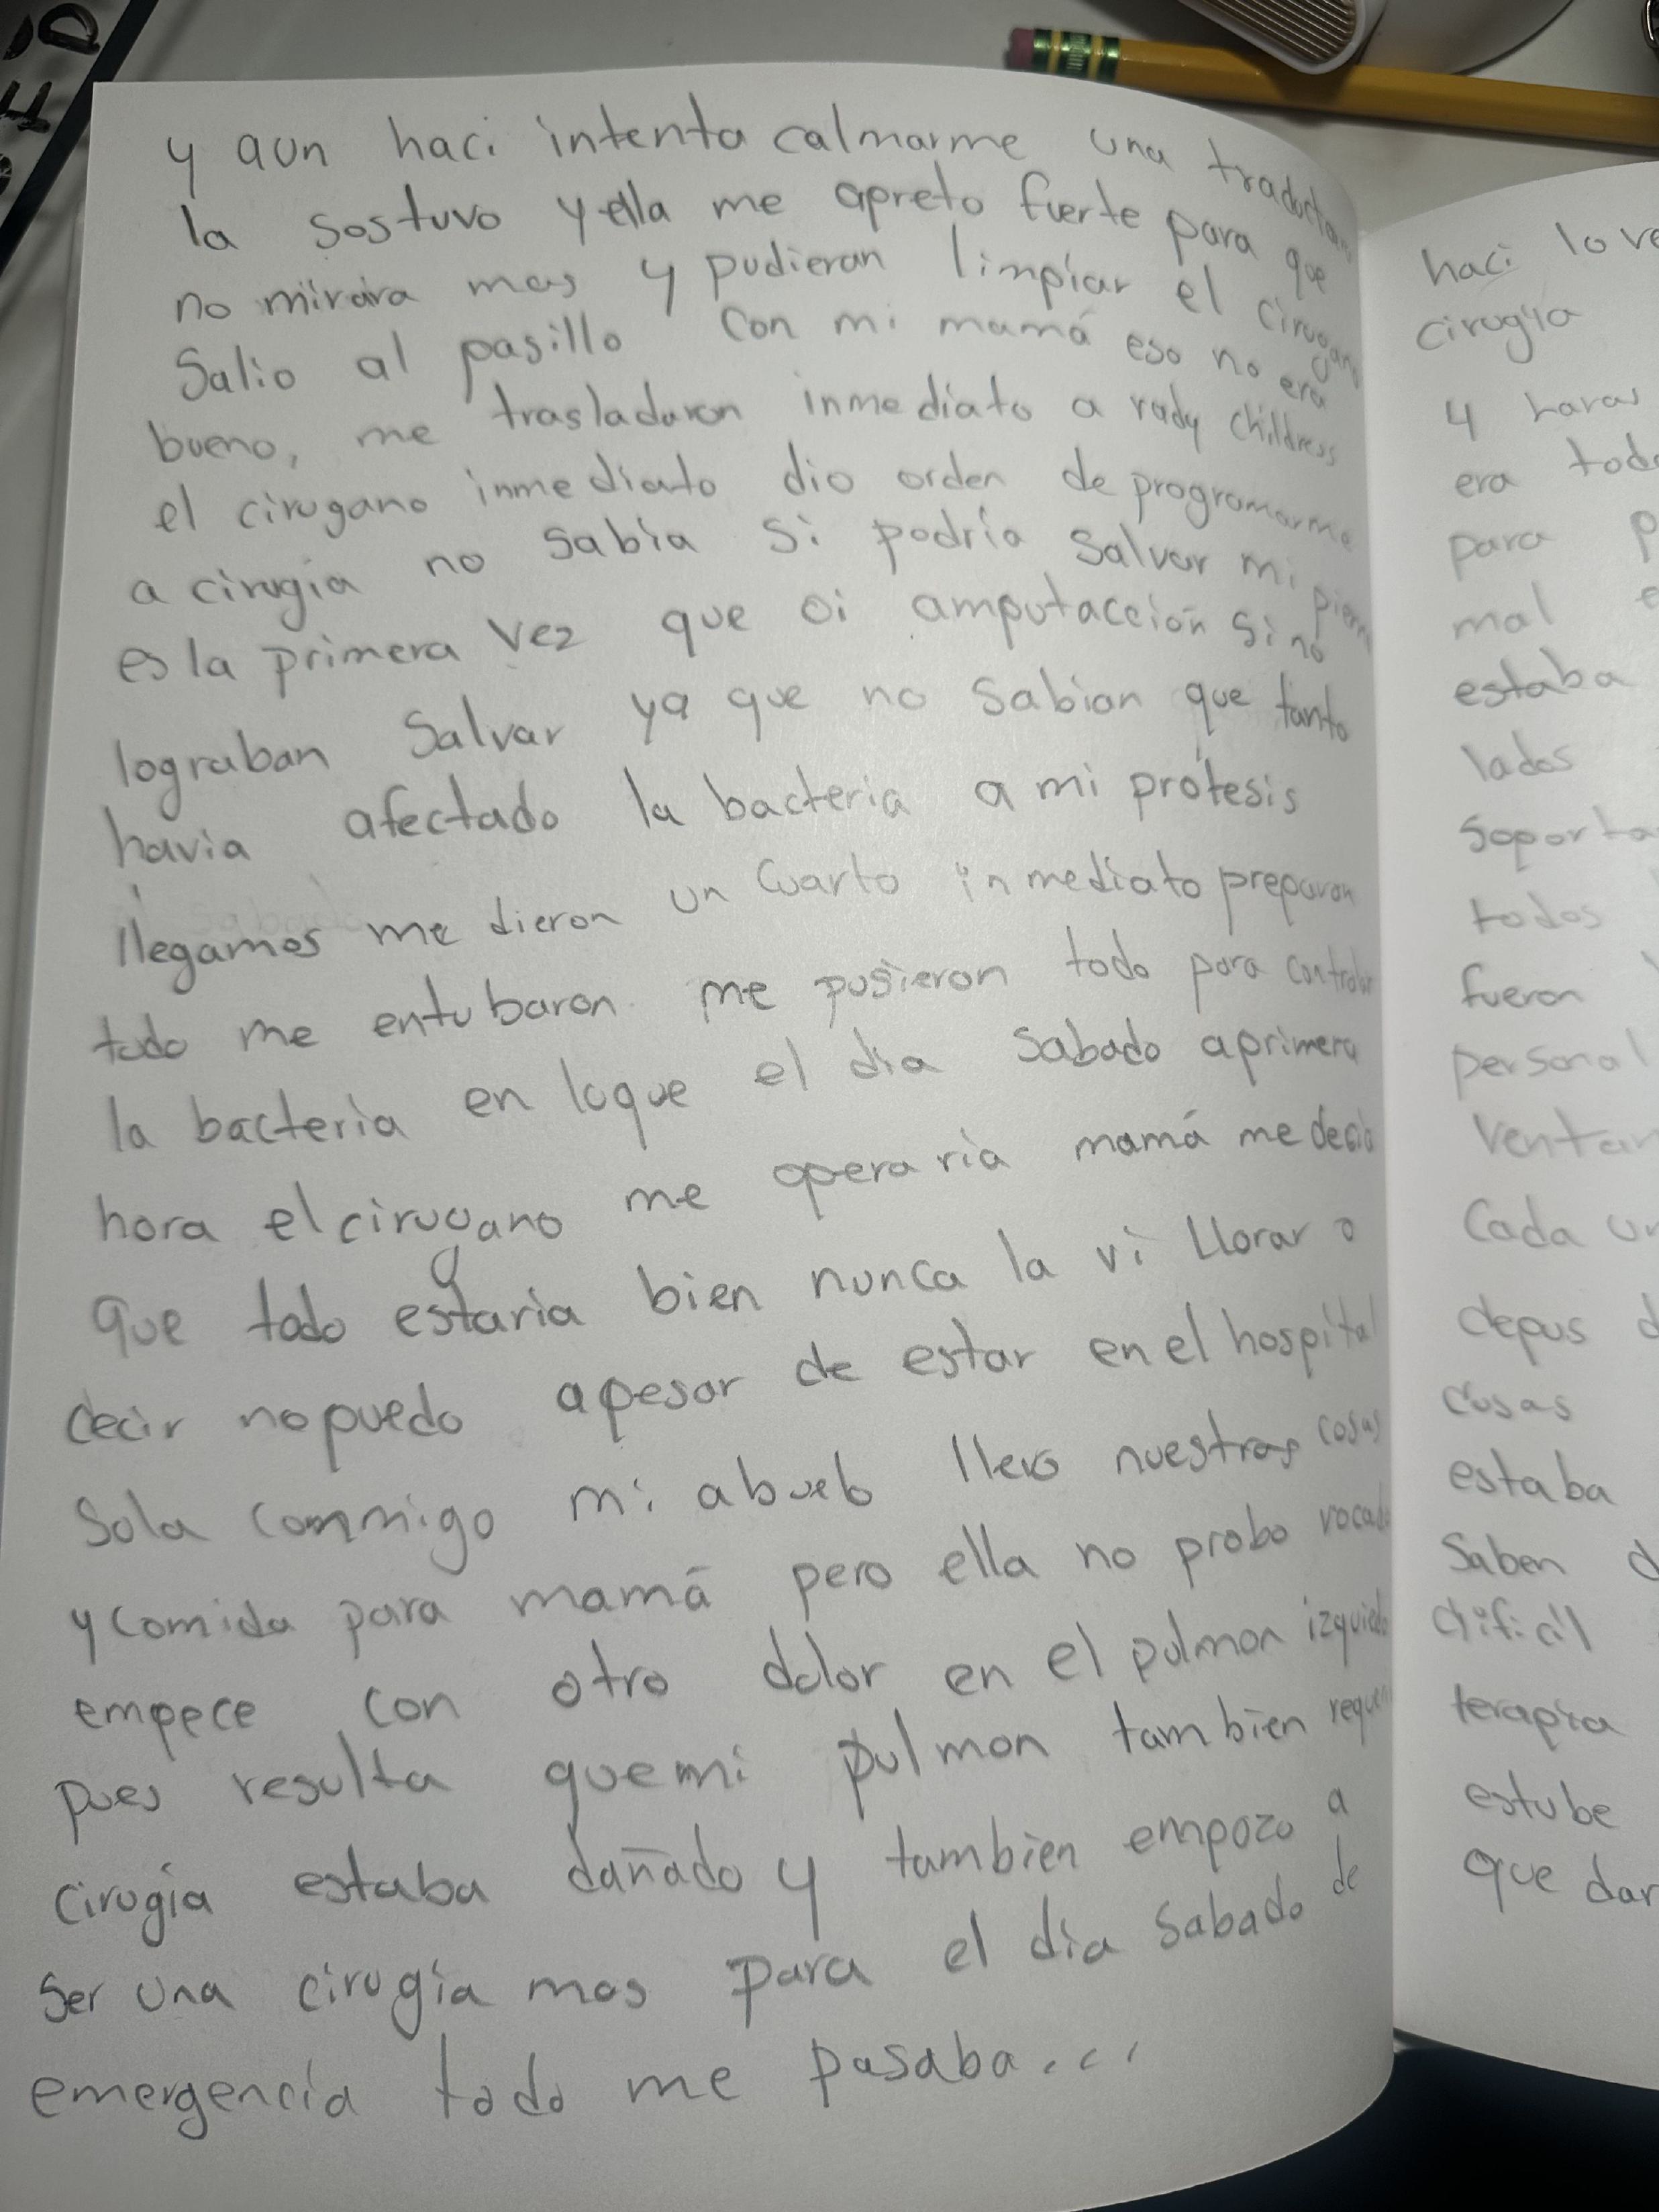 y aun haci intenta calmarme una traductora
la sostuvo y ella me apreto fuerte para que
no mirara mas y pudieran limpiar el cirugano
Salio al pasillo con mi mamá eso no era
bueno, me trasladaron inmediato a rady childress
el cirugano inmediato dio orden de programarme
a cirugia no sabia si podria salvar mi pierna
es la primera vez que oi amputaccion si no
lograban Salvar ya que no sabian que tanto
havia afectado la bacteria a mi prótesis
llegamos me dieron un cuarto inmediato preparon
todo me entubaron me pusieron todo para controlar
la bacteria en loque el dia sabado aprimera
hora el cirugano me operaria mamá me decia
que todo estaria bien nunca la vi llorar o
decir nopuedo apesar de estar en el hospital
Sola commigo mi abuelo llevo nuestras cosas
y comida para mamá pero ella no probo vocado
empece con otro dolor en el pulmon izquierdo
pues resulta quemi pulmon tambien
cirugia estaba dañado y tambien empozo a
ser una cirugia mas para el dia sabado de
emergencia todo me pasaba...
haci lo
cirugia
4 horas
era
para
mal
estaba
lados
todos
fueron
personal
Cada
depus
cosas
estaba
Saben
dificil
terapia
estube
que dar